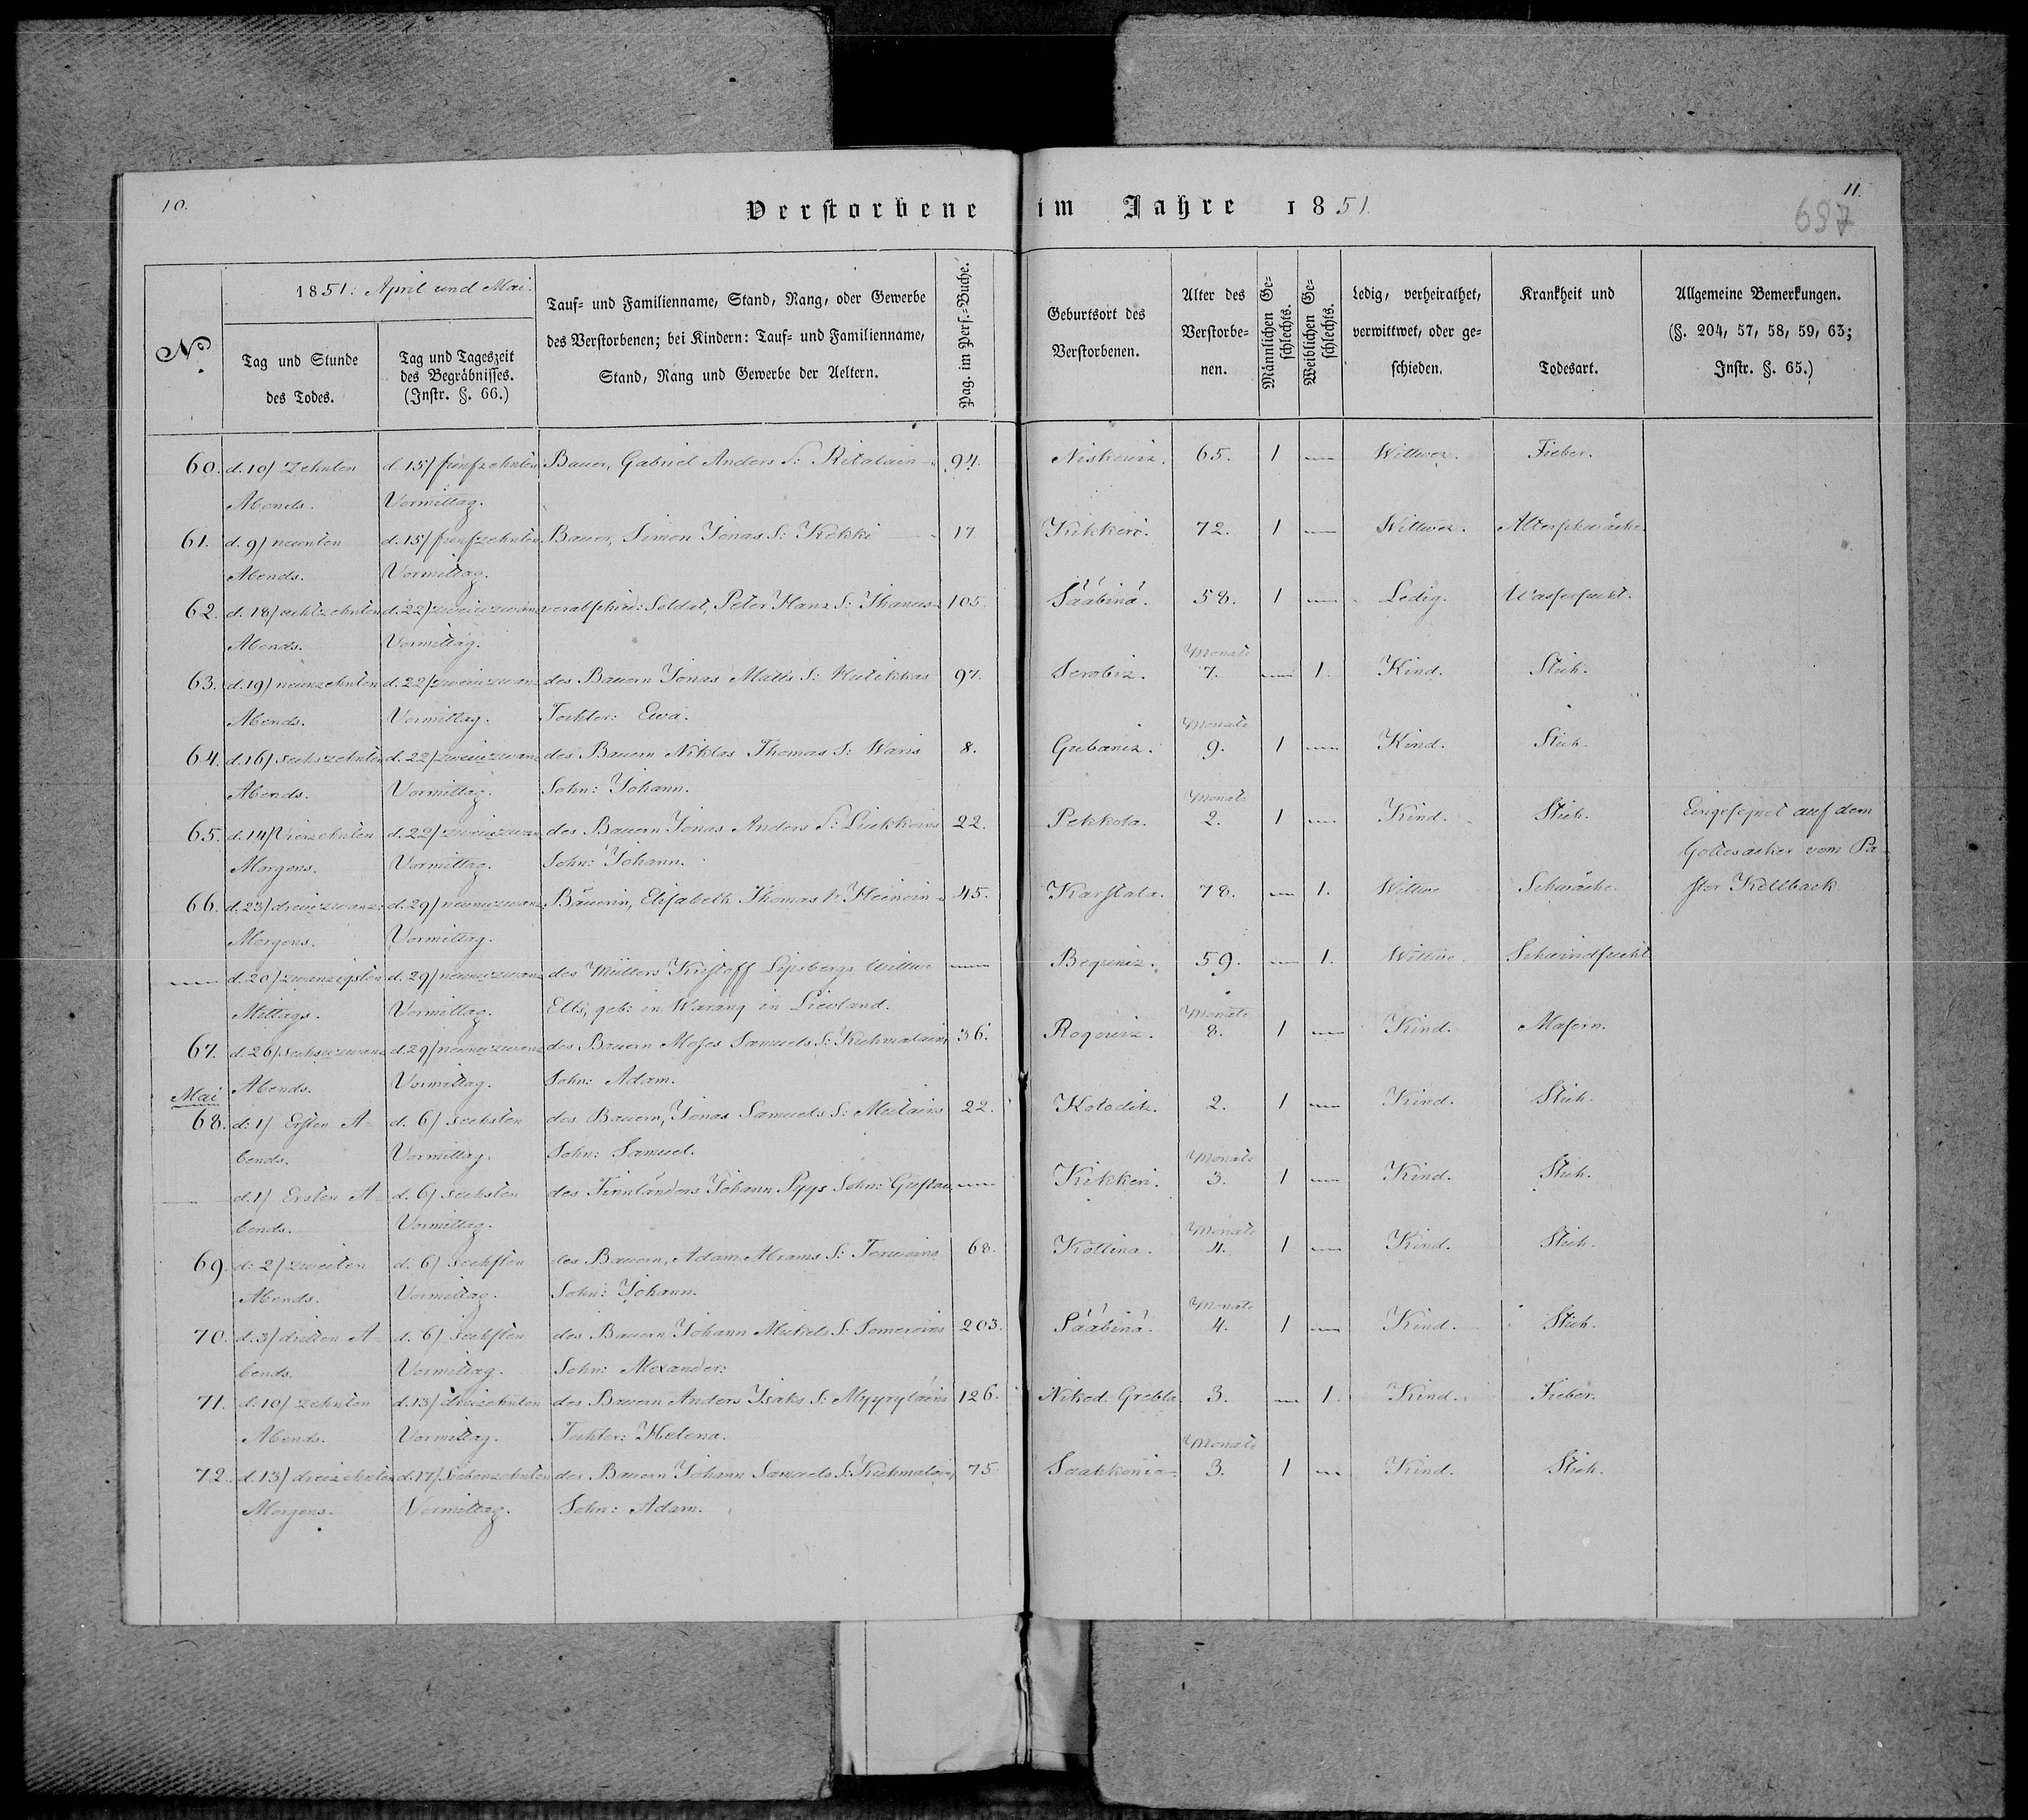 10.
Verstorbene im Jahre 1851.
11.
697
No.
1851: April und Mai.
Tag und Stunde
des Todes.
Tag und Tageszeit
des Begräbnisses.
(Instr. §. 66.)
Tauf- und Familienname, Stand, Rang, oder Gewerbe
des Verstorbenen; bei Kindern: Tauf- und Familienname,
Stand, Rang und Gewerbe der Aeltern.
Pag. im Pers.-Buche.
Geburtsort des
Verstorbenen.
Alter des
Verstorbe-
nen.
Männlichen Ge-
schlechts.
Weiblichen Ge-
schlechts.
Ledig, verheirathet,
verwittwet, oder ge-
schieden.
Krankheit und
Todesart.
Allgemeine Bemerkungen.
(§. 204, 57, 58, 59, 63;
Instr. §. 65.)
60. d. 10/ Zehnten d. 15/ fünfzehnten Bauer, Gabriel Anders S: 94. 65. 1 — Wittwer. Fieber.
Abends. Vormittag.
61. d. 9/ neunten d. 15/ fünfzehnten Bauer, Simon Jonas S: Kikki 17 Kikkeri. 72. 1 — Wittwer. Altersschwäche.
Abends. Vormittag.
62. d. 18/ achtzehnten d. 22/ zweiuzwanz verabschied: Soldat, Peter Hans S: Ihanus 105. Sääbinä. 58. 1 — Ledig. Wassersucht.
Abends. Vormittag.
Monate
63. d. 19/ neunzehnten d. 22/ zweiuzwanz des Bauern Jonas Matts S: Hutikkas 97. 7. — 1. Kind. Stich.
Abends. Vormittag. Tochter: Ewa.
Monate
64. d. 16/ sechszehnten d. 22/ zweiuzwanz des Bauern Niklas Thomas S: Waris 8. Gubaniz. 9. 1 — Kind. Stich.
Abends. Vormittag. Sohn: Johann.
Monate
65. d. 14/ Vierzehnten d. 22/ zweiuzwan des Bauern Jonas Anders S: Liukkoins 22. Pekkola. 2. 1 — Kind. Stich. Eingesegnet auf dem
Morgens. Vormittag. Sohn: Johann. Gottesacker vom Pa-
66. d. 23/ dreiuzwanz: d. 29/ neunuzwanz: Bäuerin, Elisabeth Thomas t: Heinoin 45. Karstala. 78. — 1. Wittwe Schwäche. stor Kellback
Morgens. Vormittag.
— d. 20/ zwanzigsten d. 29/ neunuzwanz des Müllers Kristoff Lipsbergs Wittwe — 59. — 1. Wittwe. Schwindsucht
Mittags. Vormittag. Ells, geb: in Warang in Lievland.
Monate
67. d. 26/ sechsuzwanz d. 29/ neunuzwanz des Bauern Moses Samuels S: Kuhmalains 36. Rogowiz. 8. 1 — Kind. Masern.
Abends. Vormittag. Sohn: Adam.
Mai
68. d: 1/ Ersten A- d. 6/ sechsten des Bauern, Jonas Samuels S: Mutains 22. Koloditz. 2. 1 — Kind. Stich.
bends. Vormittag. Sohn: Samuel.
Monate
— d. 1/ Ersten A- d. 6/ sechsten des Finnländers Johann Pyys Sohn: Gustav — Kikkeri. 3. 1 — Kind. Stich.
bends. Vormittag.
Monate
69. d: 2/ zweiten d. 6/ sechsten des Bauern, Adam Abrams S: 68. 4. 1 — Kind. Stich.
Abends. Vormittag. Sohn: Johann.
Monate
70. d. 3/ dritten A- d. 6/ sechsten des Bauern Johann Mickels S: Someroins 203. Sääbinä. 4. 1 — Kind. Stich.
bends. Vormittag. Sohn: Alexander:
71. d: 10/ zehnten d. 13/ dreizehnten des Bauern Anders Isaks S: Myyryläins 126. Niked. Grebla. 3. — 1. Kind. Fieber.
Abends. Vormittag. Tochter: Helena.
Monate
72. d. 13/ dreizehnten d. 17/ siebenzehnten des Bauern Johann Samuels S: Kuhmalains 75. 3. 1 — Kind. Stich.
Morgens. Vormittag. Sohn: Adam.